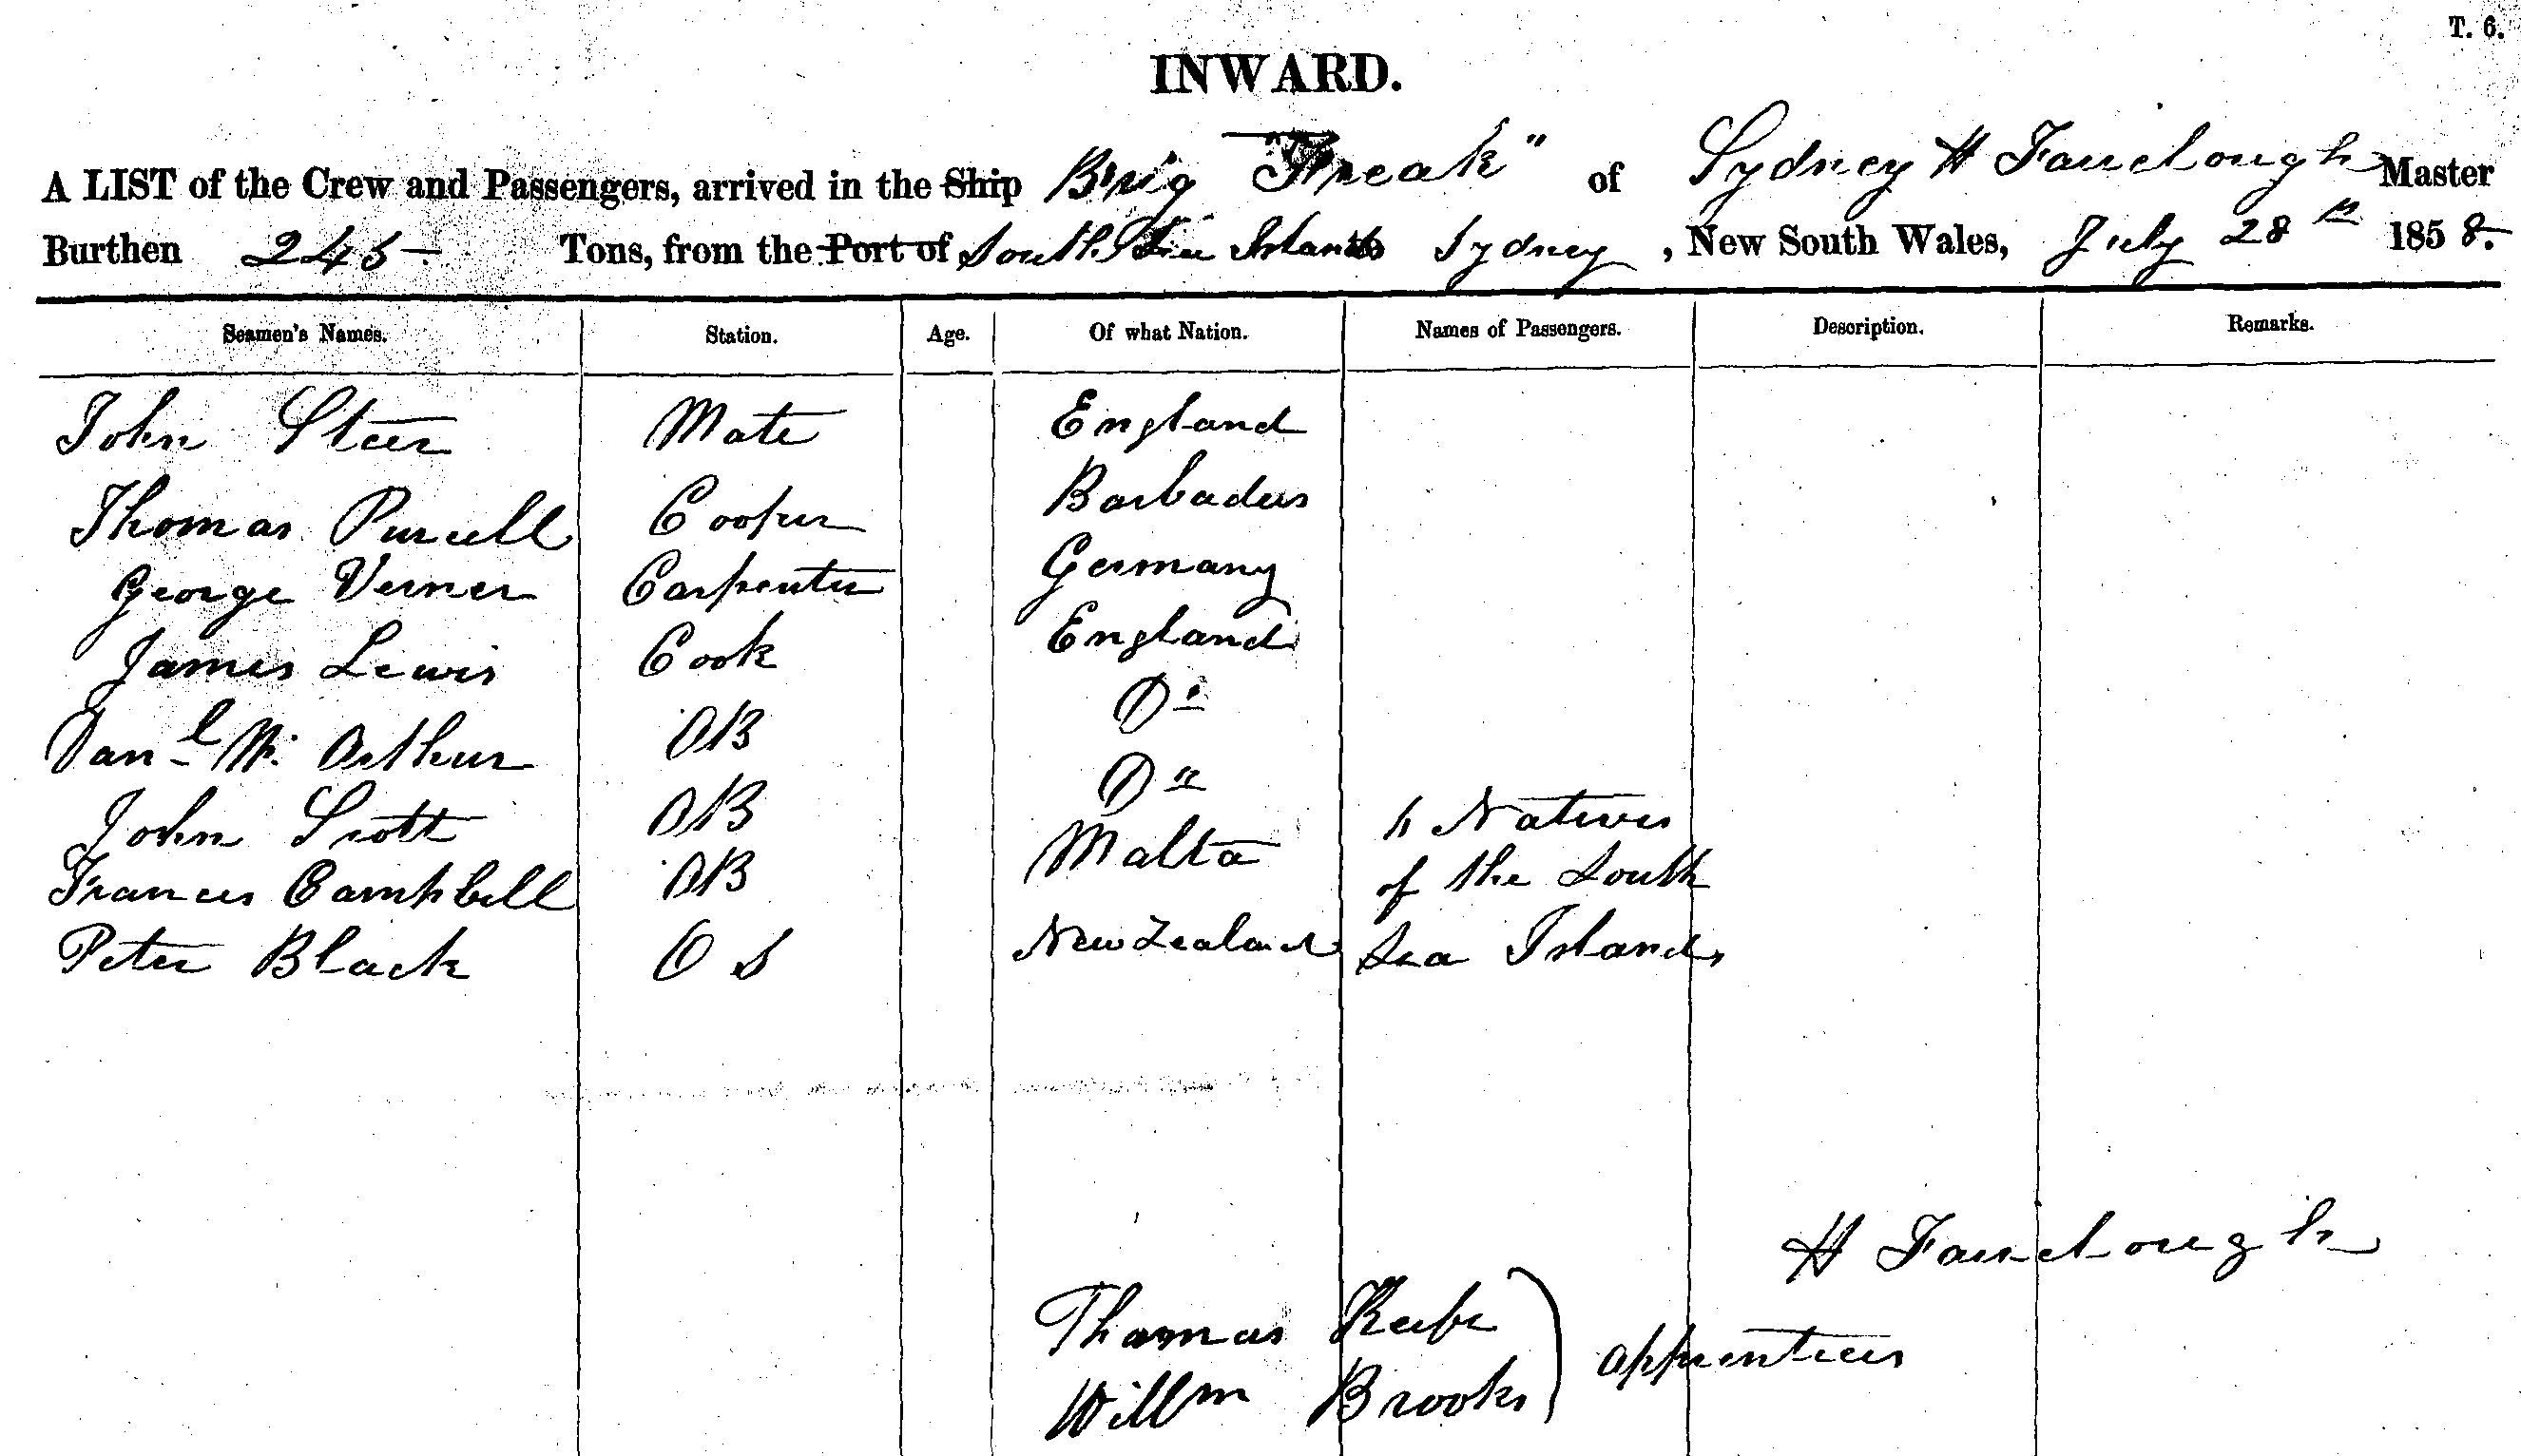 T. 6.
INWARD.
A LIST of the Crew and Passengers, arrived in the Ship Brig "Freak" of Sydney H Fairclough Master
Burthen 245 Tons, from the Port of South Sea Islands Sydney, New South Wales, July 28th 1858.
Seamen's Names. Station. Age. Of what Nation. Names of Passengers. Description. Remarks.
John Steer Mate England
Thomas Purcell Cooper Barbadus
George Verner Carpenter Germany
James Lewis Cook England
Danl Mc Arthur AB Do
John Scott AB Do
Frances Campbell AB Malta
Peter Black O S New Zealand
4 Natives
of the South
Sea Islands
H Fairclough
Thomas
Willm Brooks
apprentices